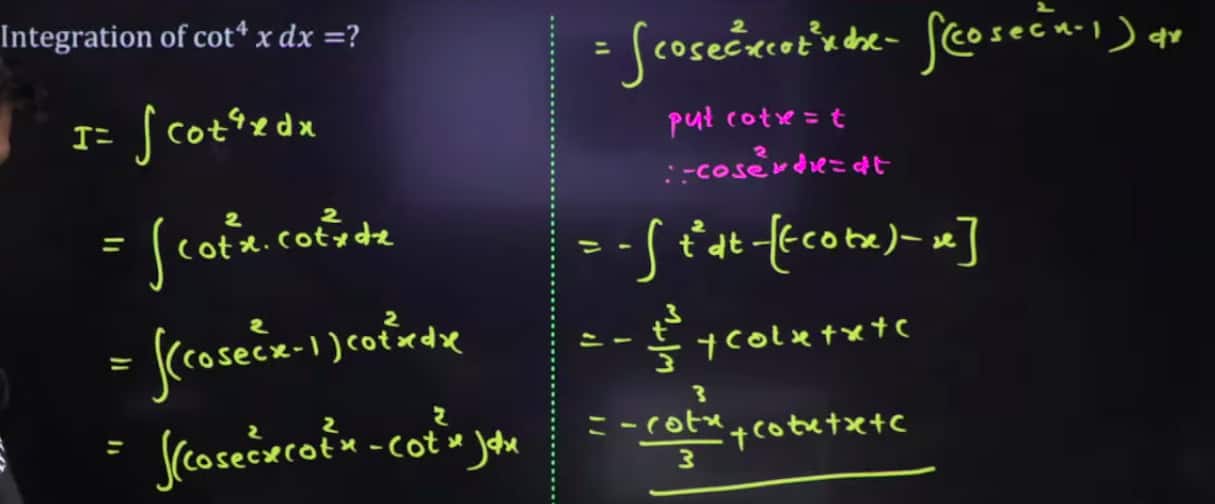 Integration of cot⁴ x dx =?
I= ∫ cot⁴x dx
= ∫ cot²x. cot²x dx
= ∫(cosec²x-1) cot²x dx
= ∫(cosec²x cot²x - cot²x )dx
= ∫ cosec²x cot²x dx - ∫(cosec²x-1) dx
put cotx = t
∴ -cose²x dx = dt
= - ∫ t² dt -[(-cotx) - x]
= - t³/3 + cotx + x + c
= - cot³x/3 + cotx + x + c